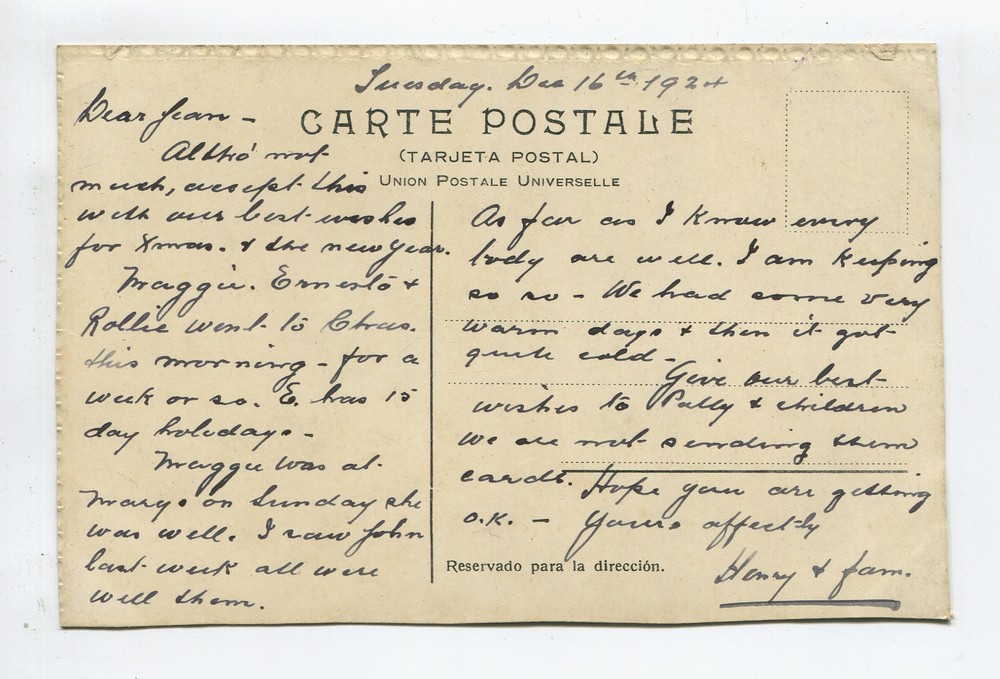 Tuesday. Dec 16th 1924
CARTE POSTALE
(TARJETA POSTAL)
UNION POSTALE UNIVERSELLE
Dear Jean –
Altho' not
much, accept this
with our best wishes
for Xmas. & the new year.
Maggie. Ernesto &
Rollie went to Chas.
this morning – for a
week or so. E. has 15
day holidays –
Maggie was at
Margs on Sunday she
was well. I saw John
last week all were
well them.
As far as I know every
body are well. I am keeping
so so – We had some very
warm days & then it got
quite cold –
Give our best
wishes to Patty & children
we are not sending them
cards. Hope you are getting
O.K. – Yours affectly
Henry & fam.
Reservado para la dirección.